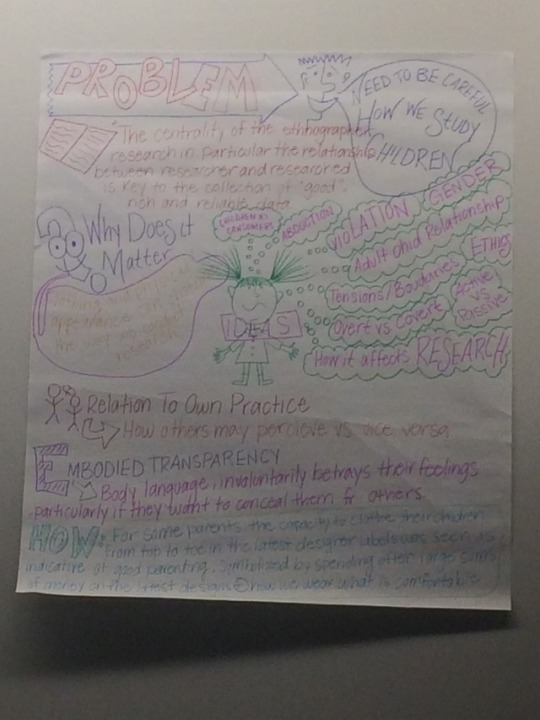 PROBLEM
NEED TO BE CAREFUL
HOW WE STUDY
CHILDREN
"The centrality of the ethnographer
research in particular the relationship
between researcher and researched
is key to the collection of "good",
rich and reliable data
Why Does it
Matter
Clothing and
appearance
the way we conduct
research
CHILDREN AS
CONSUMERS
ABDUCTION
VIOLATION
GENDER
Adult Child Relationship
Tensions/Boundaries
ETHICS
Overt vs Covert
Active
vs
Passive
How it affects RESEARCH
IDEAS
Relation To Own Practice
How others may percieve vs vice versa
EMBODIED TRANSPARENCY
Body language, involuntarily betrays their feelings
particularly if they want to conceal them fr others
HOW: For some parents, the capacity to clothe their children
from top to toe in the latest designer labels was seen as
indicative of good parenting, symbolized by spending often large sums
of money on the latest designs how we wear what is comfortable